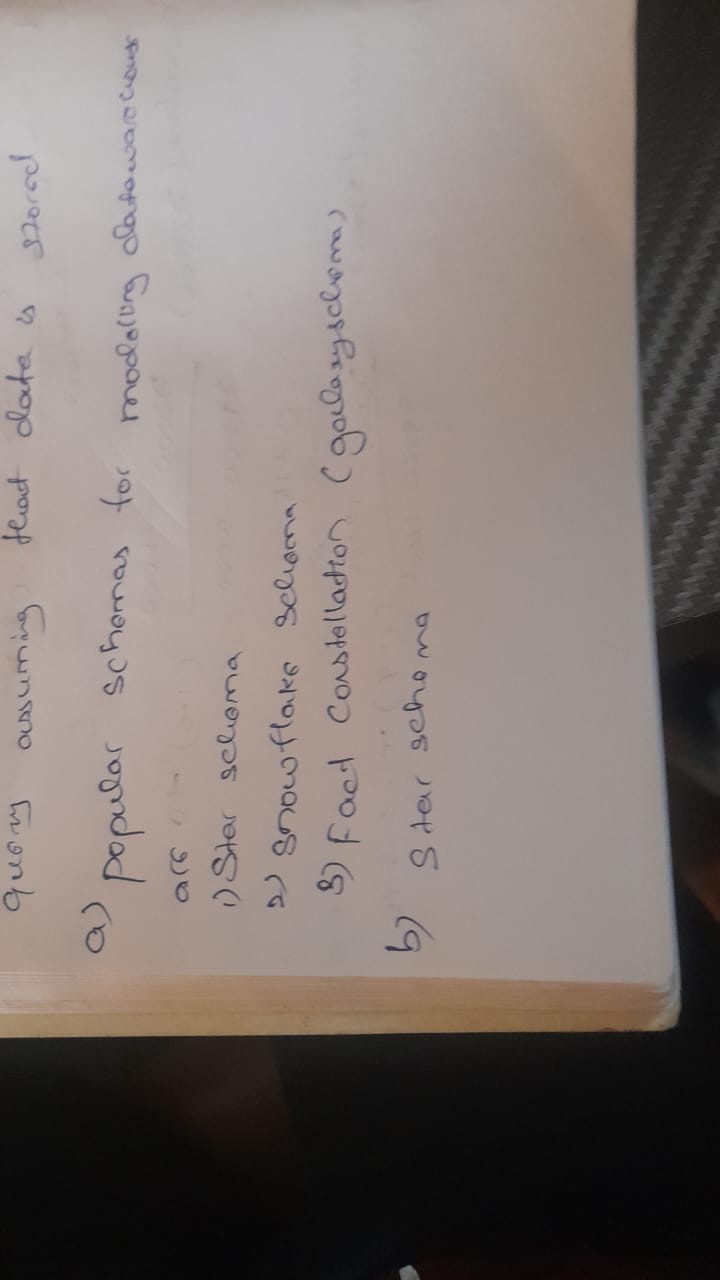 query assuming that data is stored
a) popular schemas for modelling datawarehouse
are
1) Star schema
2) Snowflake schema
3) Fact constellation (galaxyschema)
b) Star schema